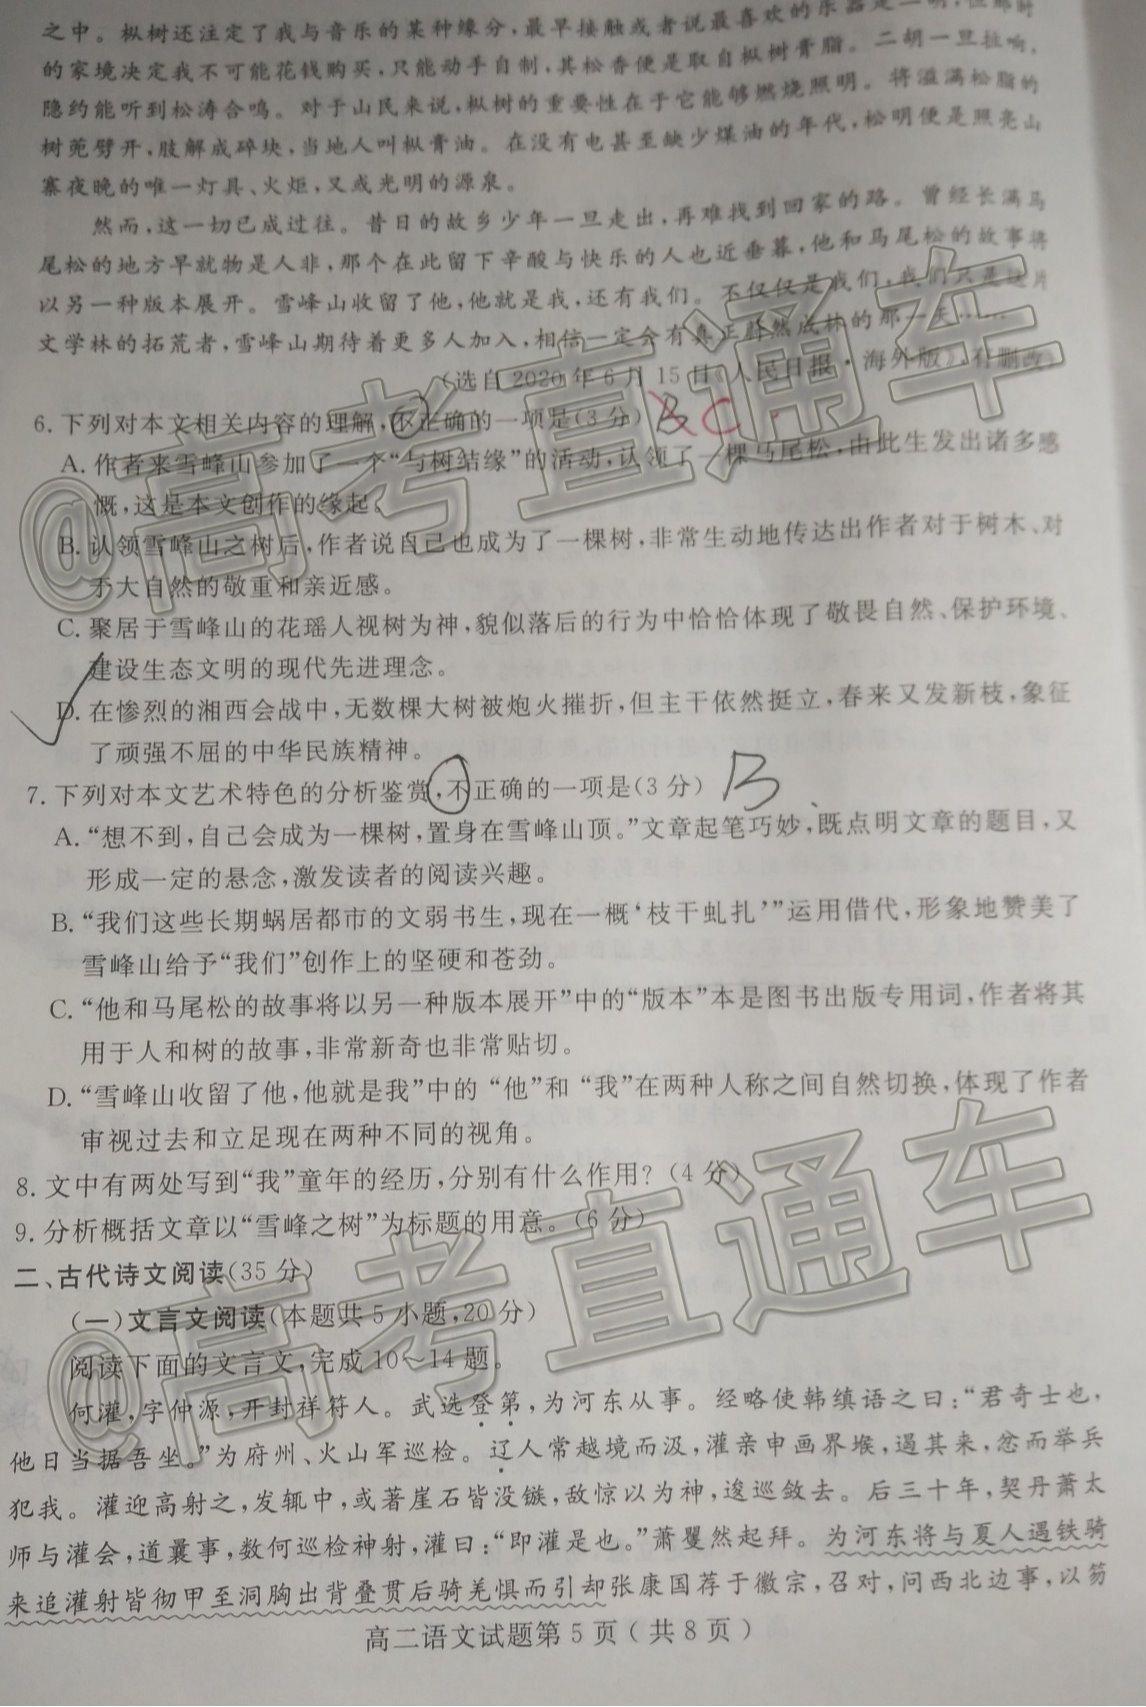 之中。枞树还注定了我与音乐的某种缘分，最早接触或者说最喜欢的乐器是二胡，但那时
的家境决定我不可能花钱购买，只能动手自制，其松香便是取自枞树膏脂。二胡一旦拉响，
隐约能听到松涛合鸣。对于山民来说，枞树的重要性在于它能够燃烧照明。将溢满松脂的
树蔸劈开，肢解成碎块，当地人叫枞膏油。在没有电甚至缺少煤油的年代，松明便是照亮山
寨夜晚的唯一灯具、火炬，又或光明的源泉。
然而，这一切已成过往。昔日的故乡少年一旦走出，再难找到回家的路。曾经长满马
尾松的地方早就物是人非，那个在此留下辛酸与快乐的人也近垂暮，他和马尾松的故事将
以另一种版本展开。雪峰山收留了他，他就是我，还有我们。不仅仅是我们，我们只是这片
文学林的拓荒者，雪峰山期待着更多人加入，相信一定会有真正蔚然成林的那一天……
（选自2020年6月15日《人民日报·海外版》，有删改）
6.下列对本文相关内容的理解，不正确的一项是（3分） B C
A.作者来雪峰山参加了一个“与树结缘”的活动，认领了一棵马尾松，由此生发出诸多感
慨，这是本文创作的缘起。
B.认领雪峰山之树后，作者说自己也成为了一棵树，非常生动地传达出作者对于树木、对
于大自然的敬重和亲近感。
C.聚居于雪峰山的花瑶人视树为神，貌似落后的行为中恰恰体现了敬畏自然、保护环境、
建设生态文明的现代先进理念。
D.在惨烈的湘西会战中，无数棵大树被炮火摧折，但主干依然挺立，春来又发新枝，象征
了顽强不屈的中华民族精神。
7.下列对本文艺术特色的分析鉴赏，不正确的一项是（3分） B
A.“想不到，自己会成为一棵树，置身在雪峰山顶。”文章起笔巧妙，既点明文章的题目，又
形成一定的悬念，激发读者的阅读兴趣。
B.“我们这些长期蜗居都市的文弱书生，现在一概‘枝干虬扎’”运用借代，形象地赞美了
雪峰山给予“我们”创作上的坚硬和苍劲。
C.“他和马尾松的故事将以另一种版本展开”中的“版本”本是图书出版专用词，作者将其
用于人和树的故事，非常新奇也非常贴切。
D.“雪峰山收留了他，他就是我”中的“他”和“我”在两种人称之间自然切换，体现了作者
审视过去和立足现在两种不同的视角。
8.文中有两处写到“我”童年的经历，分别有什么作用？（4分）
9.分析概括文章以“雪峰之树”为标题的用意。（6分）
二、古代诗文阅读（35分）
（一）文言文阅读（本题共5小题，20分）
阅读下面的文言文，完成10～14题。
何灌，字仲源，开封祥符人。武选登第，为河东从事。经略使韩缜语之曰：“君奇士也，
他日当据吾坐。”为府州、火山军巡检。辽人常越境而汲，灌亲申画界堠，遏其来，忿而举兵
犯我。灌迎高射之，发辄中，或著崖石皆没镞，敌惊以为神，逡巡敛去。后三十年，契丹萧太
师与灌会，道曩事，数何巡检神射，灌曰：“即灌是也。”萧矍然起拜。为河东将与夏人遇铁骑
来追灌射皆彻甲至洞胸出背叠贯后骑羌惧而引却张康国荐于徽宗，召对，问西北边事，以笏
高二语文试题第5页（共8页）
@高考直通车
@高考直通车